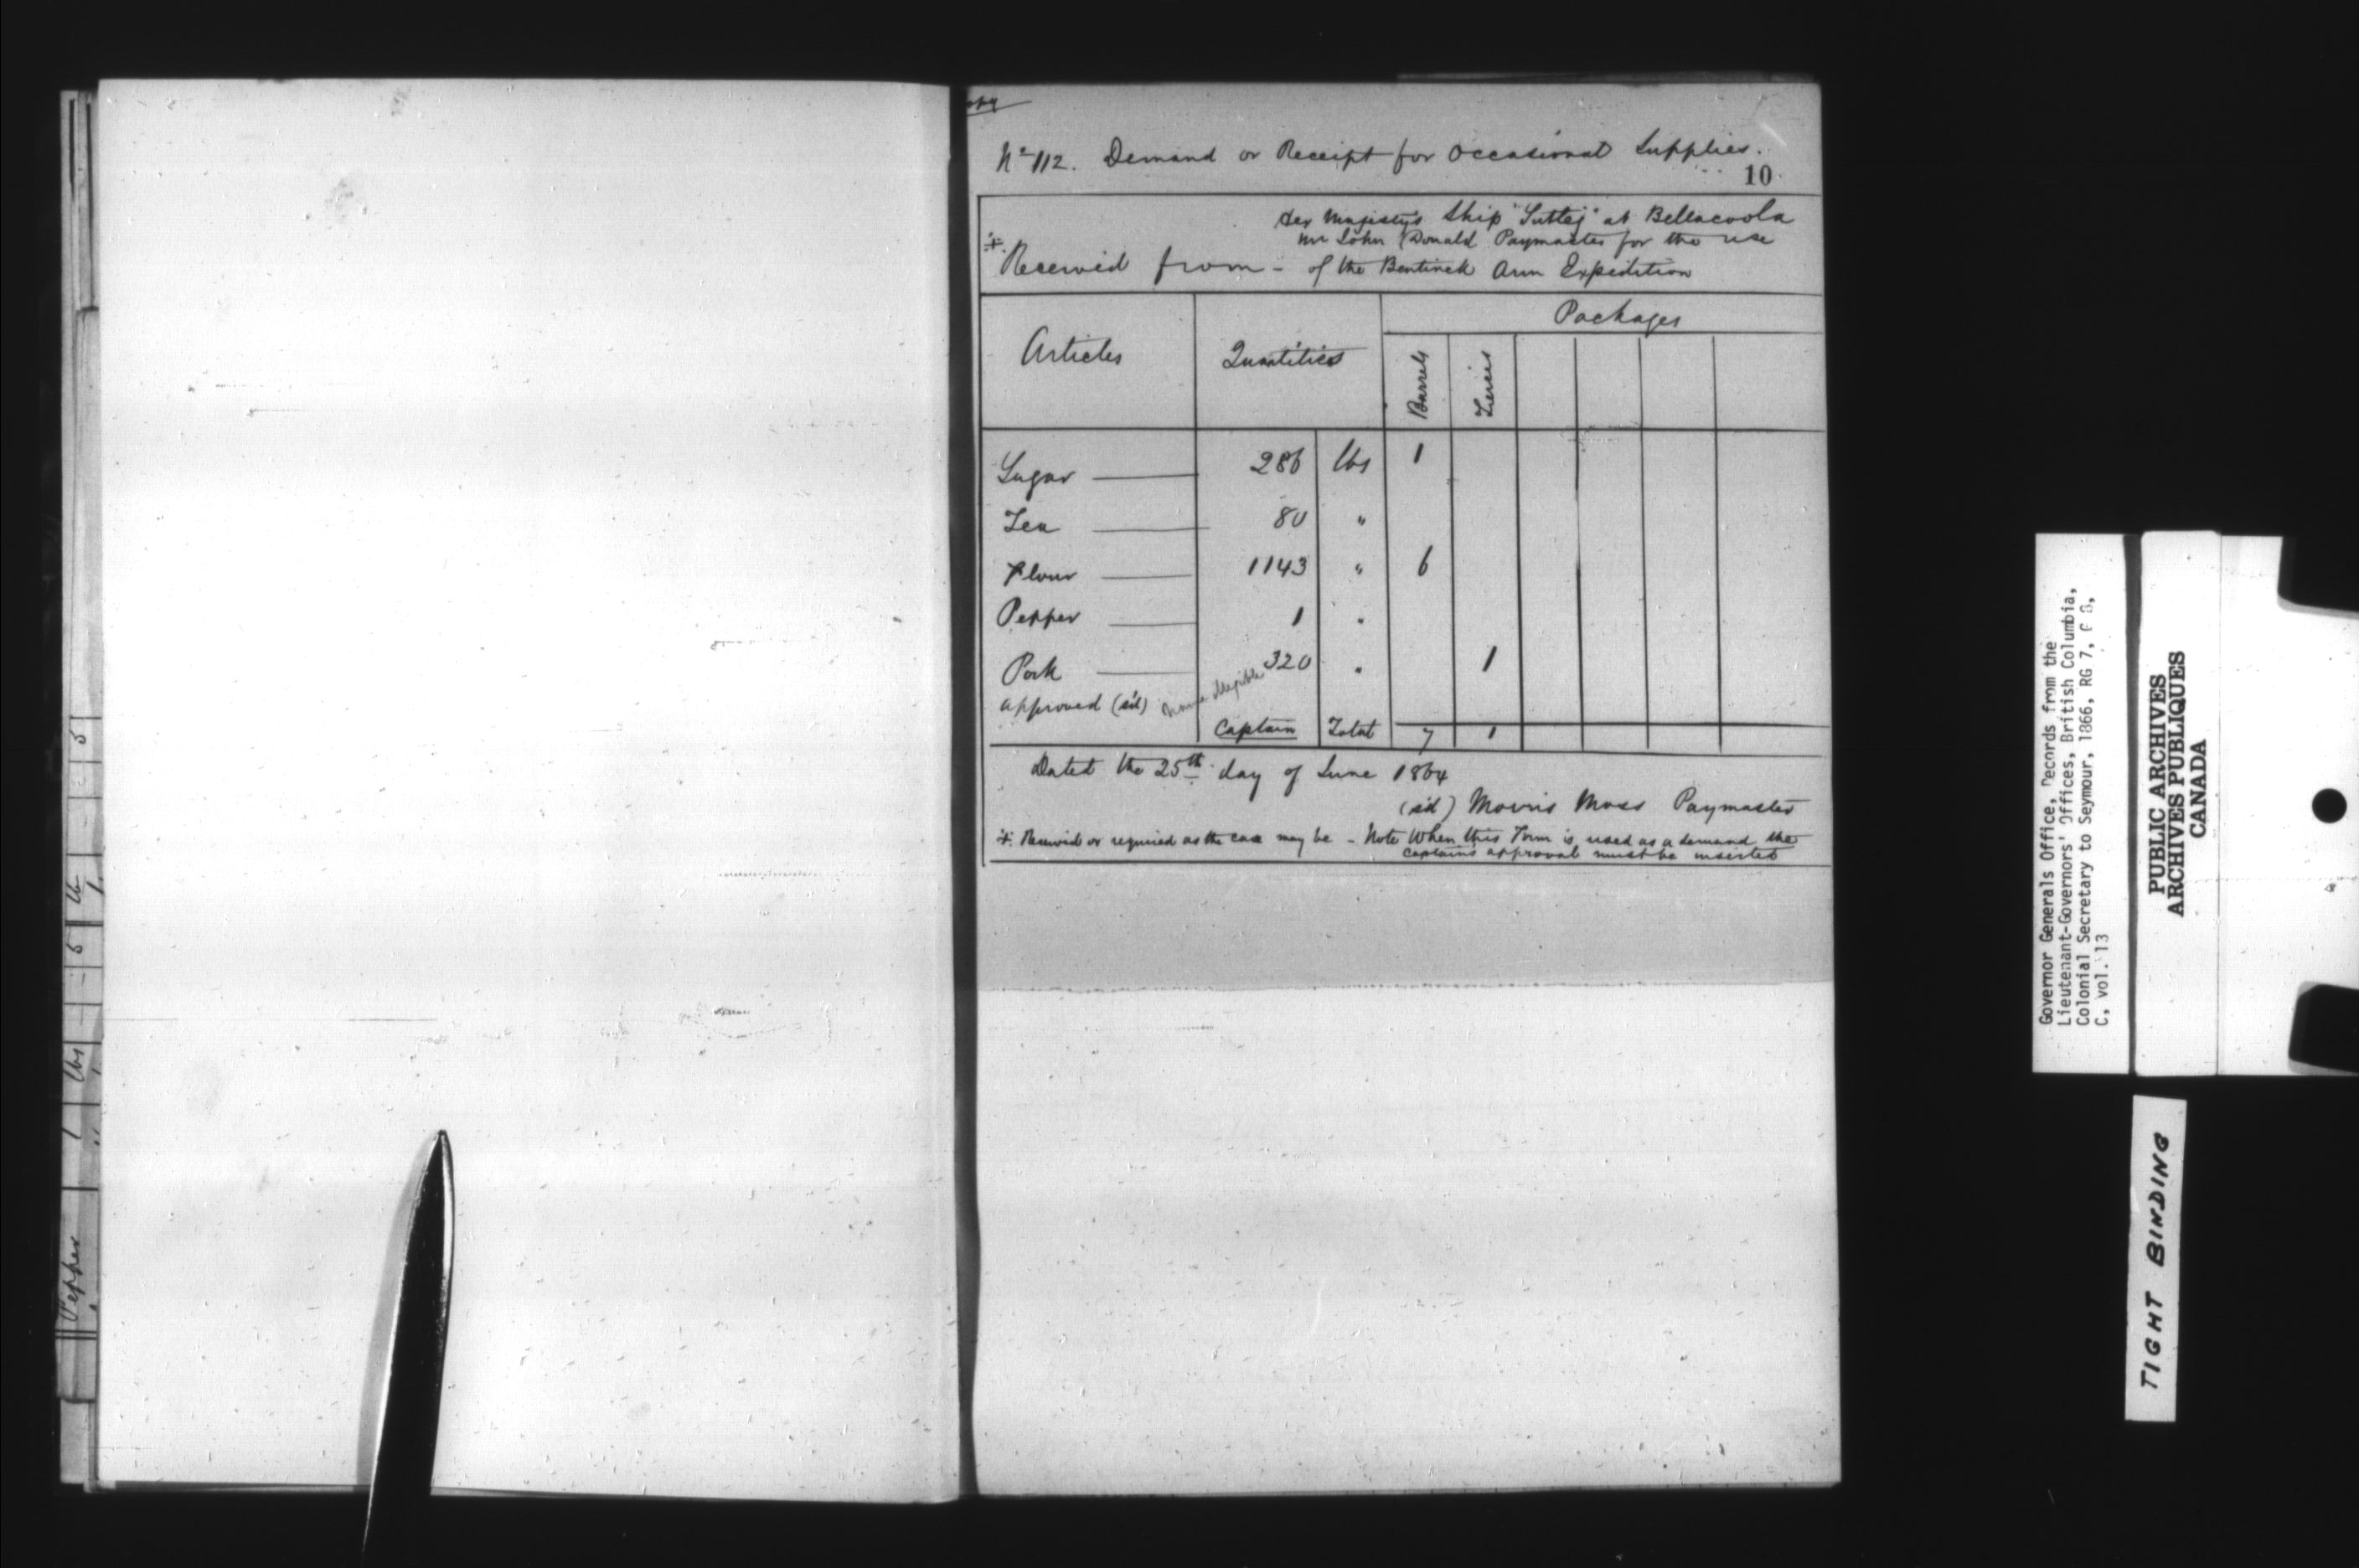 Pepper 1 lbs - 5 lb - - 5
" 1
opy
No 112. Demand or Receipt for Occasional Supplies.
10
Her Majesty's Ship "Sutlej" at Bellacoola
Mr John Donald Paymaster for the use
Received from - of the Bentinck Arm Expedition
Packages
Articles Quantities Barrels Tierces
Sugar 286 lbs 1
Tea 80 "
Flour 1143 " 6
Pepper 1 "
Pork 320 " 1
Approved (sd) Name illegible
Captain Total 7 1
Dated the 25th day of June 1864
(sd) Morris Moss Paymaster
Received or required as the case may be - Note When this Form is used as a demand the
Captains approval must be inserted
Governor Generals Office, Records from the
Lieutenant-Governors' Offices, British Columbia,
Colonial Secretary to Seymour, 1866, RG 7, G 8,
C, vol. 13
PUBLIC ARCHIVES
ARCHIVES PUBLIQUES
CANADA
TIGHT BINDING